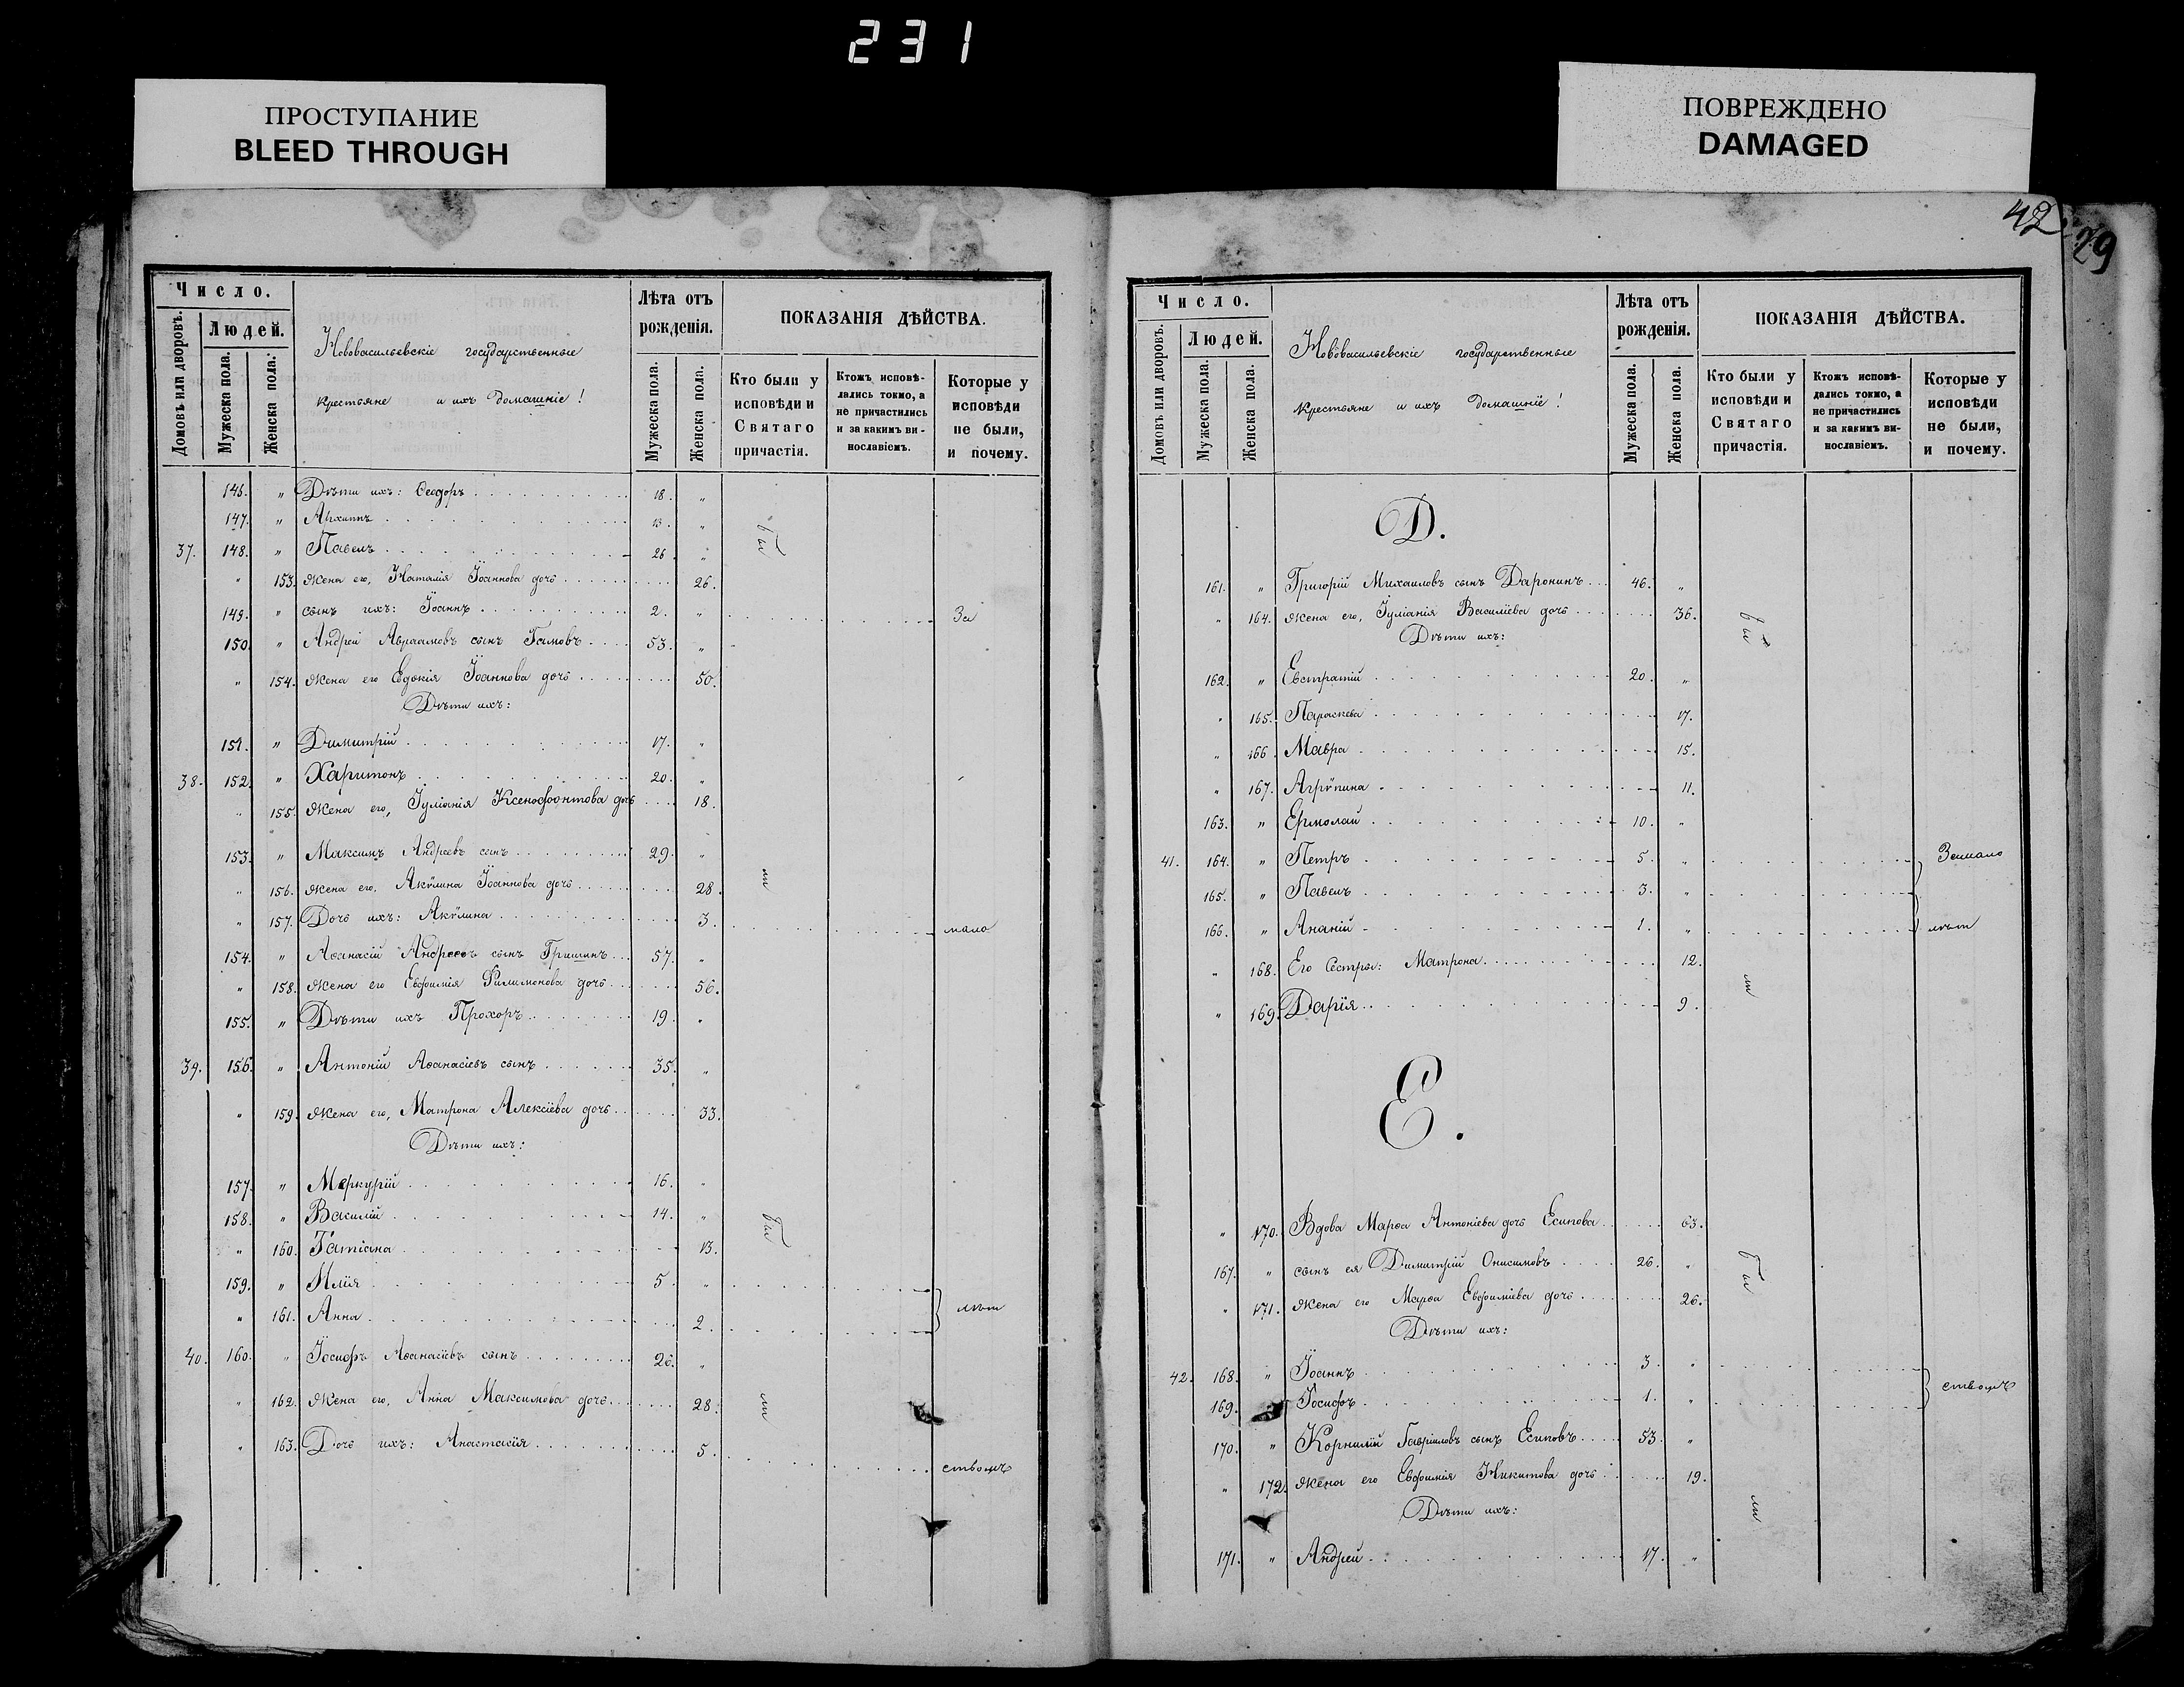 231
ПРОСТУПАНИЕ
BLEED THROUGH
ПОВРЕЖДЕНО
DAMAGED
Число.
Домовъ или дворовъ.
Людей.
Мужеска пола.
Женска пола.
Нововасильевскіе государственные
крестьяне и ихъ домашніе!
Лѣта отъ
рожденія.
Мужеска пола.
Женска пола.
ПОКАЗАНІЯ ДѢЙСТВА.
Кто были у
исповѣди и
Святаго
причастія.
Ктожъ исповѣ-
дались токмо, а
не причастились
и за какимъ ви-
нословіемъ.
Которые у
исповѣди
не были,
и почему.
146. " Дѣти ихъ: Ѳеодоръ 18. "
147. " Архиппъ 13. "
бы
37. 148. " Павелъ 26. "
" 153. Жена его, Наталія Іоаннова дочь 26.
149. " сынъ ихъ: Іоаннъ 2. " За
150. " Андрей Авраамовъ сынъ 53. "
" 154. Жена его Евдокія Іоаннова дочь 50.
Дѣти ихъ:
151. " Димитрій 17. "
38. 152. " Харитонъ 20. "
" 155. Жена его, Іуліанія Ксенофонтова дочь 18.
153. " Максимъ Андреевъ сынъ 29. "
" 156. Жена его, Акѵлина Іоаннова дочь 28.
ли
" 157. Дочь ихъ: Акѵлина 3. мало
154. " Аѳанасій Андреевъ сынъ Гришинъ 57. "
" 158. Жена его Евфимія Филимонова дочь 56.
155. " Дѣти ихъ Прохоръ 19. "
39. 156. " Антоній Аѳанасіевъ сынъ 35. "
" 159. Жена его, Матрона Алексіева дочь 33.
Дѣти ихъ:
157. " Меркурій 16. "
158. " Василій 14. "
бы
" 160. Татіана 13.
159. " Илія 5. "
лѣт
" 161. Анна 2.
40. 160. " Іосифъ Аѳанасіевъ сынъ 26. "
" 162. Жена его, Анна Максимова дочь 28.
ли
" 163. Дочь ихъ: Анастасія 5. ствомъ
42
29
Число.
Домовъ или дворовъ.
Людей.
Мужеска пола.
Женска пола.
Нововасильевскіе государственные
крестьяне и ихъ домашніе!
Лѣта отъ
рожденія.
Мужеска пола.
Женска пола.
ПОКАЗАНІЯ ДѢЙСТВА.
Кто были у
исповѣди и
Святаго
причастія.
Ктожъ исповѣ-
дались токмо, а
не причастились
и за какимъ ви-
нословіемъ.
Которые у
исповѣди
не были,
и почему.
Д.
161. " Григорій Михаиловъ сынъ Даронинъ 46. "
" 164. Жена его, Іуліанія Василіева дочь 36.
бы
Дѣти ихъ:
162. " Евстратій 20. "
" 165. Параскева 17.
" 166. Мавра 15.
" 167. Агрѵпина 11.
163. " Ермолай 10. "
41. 164. " Петръ 5. " Замало
165. " Павелъ 3. "
166. " Ананій 1. " лѣт
" 168. Его Сестры: Матрона 12.
ли
" 169. Дарія 9.
Е.
" 170. Вдова Марѳа Антоніева дочь Есипова 63.
167. " сынъ ея Димитрій Онисимовъ 26. "
бы
" 171. Жена его Марѳа Евфиміева дочь 26.
Дѣти ихъ:
42. 168. " Іоаннъ 3. "
ствомъ
169. Іосифъ 1. "
170. " Корнилій Гавріиловъ сынъ Есиповъ 53. "
" 172. Жена его Евфимія Никитова дочь 19.
ли
Дѣти ихъ:
171. " Андрей 17. "